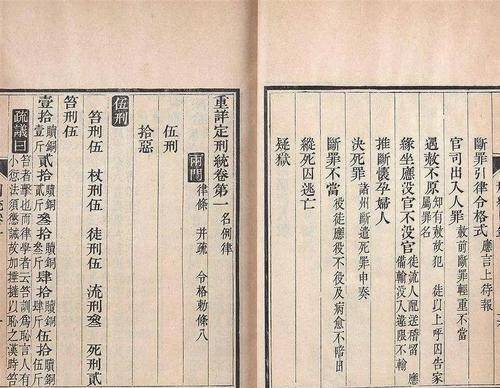 斷罪引律令格式 應言上待報
官司出入人罪 赦前斷罪輕重不當
遇赦不原 知有赦故犯 徒以上呼囚告家
屬罪名
緣坐應沒官不沒官 徒流人配送稽留 應
備輸沒入違限不輸
推斷懷孕婦人
決死罪 諸州斷遣死罪申奏
斷罪不當 役徒應役不役及病愈不陪日
縱死囚逃亡
疑獄
重詳定刑統卷第一 名例律
兩門 律條 并疏 合格勅條八
伍刑
拾惡
伍刑
笞刑伍 杖刑伍 徒刑伍 流刑叁 死刑貳
笞刑伍
壹拾 贖銅壹斤 貳拾 贖銅貳斤 叁拾 贖銅叁斤 肆拾 贖銅肆斤 伍拾 贖銅伍斤
疏議曰 笞者擊也又律學者云笞訓為恥言人有
小愆法須懲誡故加捶撻以恥之漢時笞